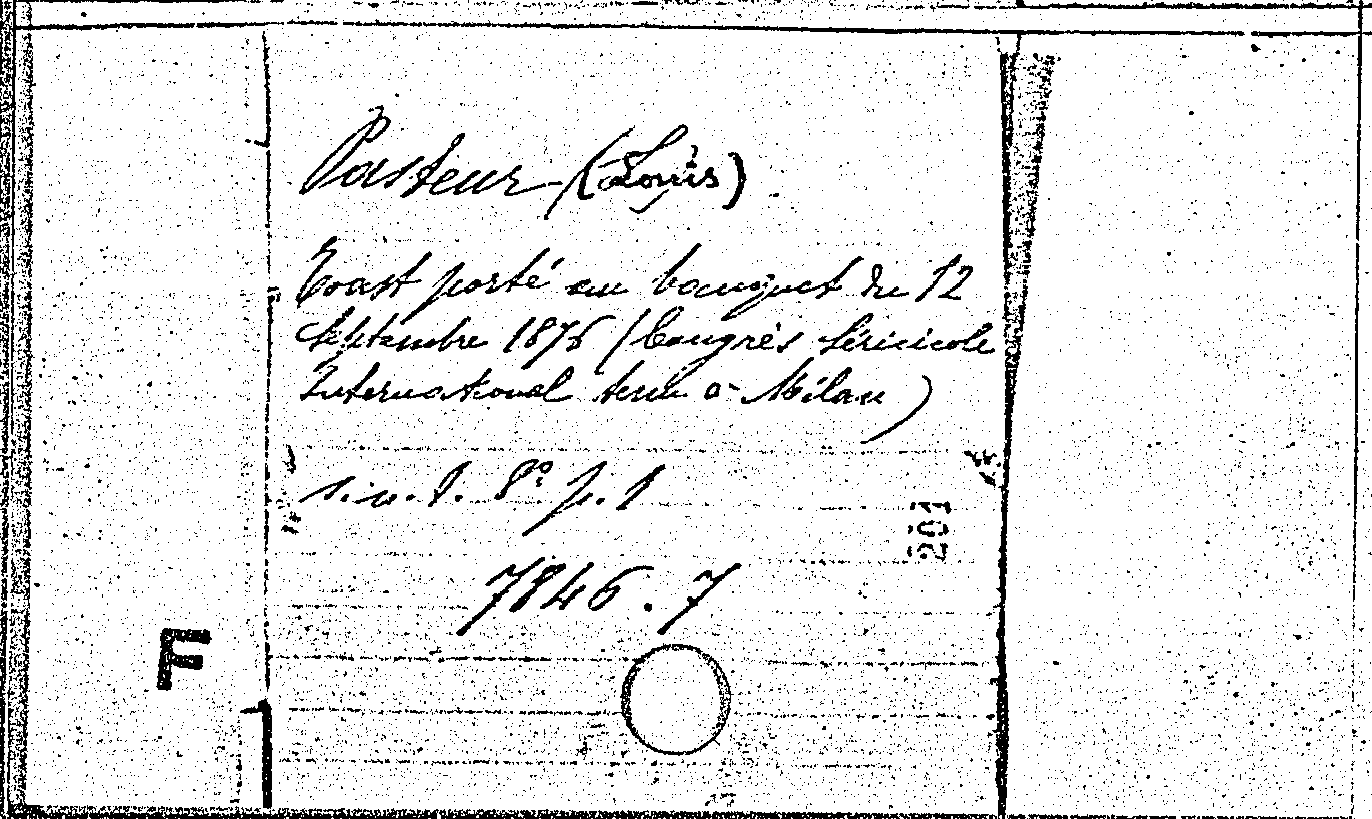 Pasteur (Louis)
Toast porté au banquet du 12
septembre 1876 (Congrès séricicole
International tenu à Milan)
s.n.t. 8° p. 1
201
7846.7
F